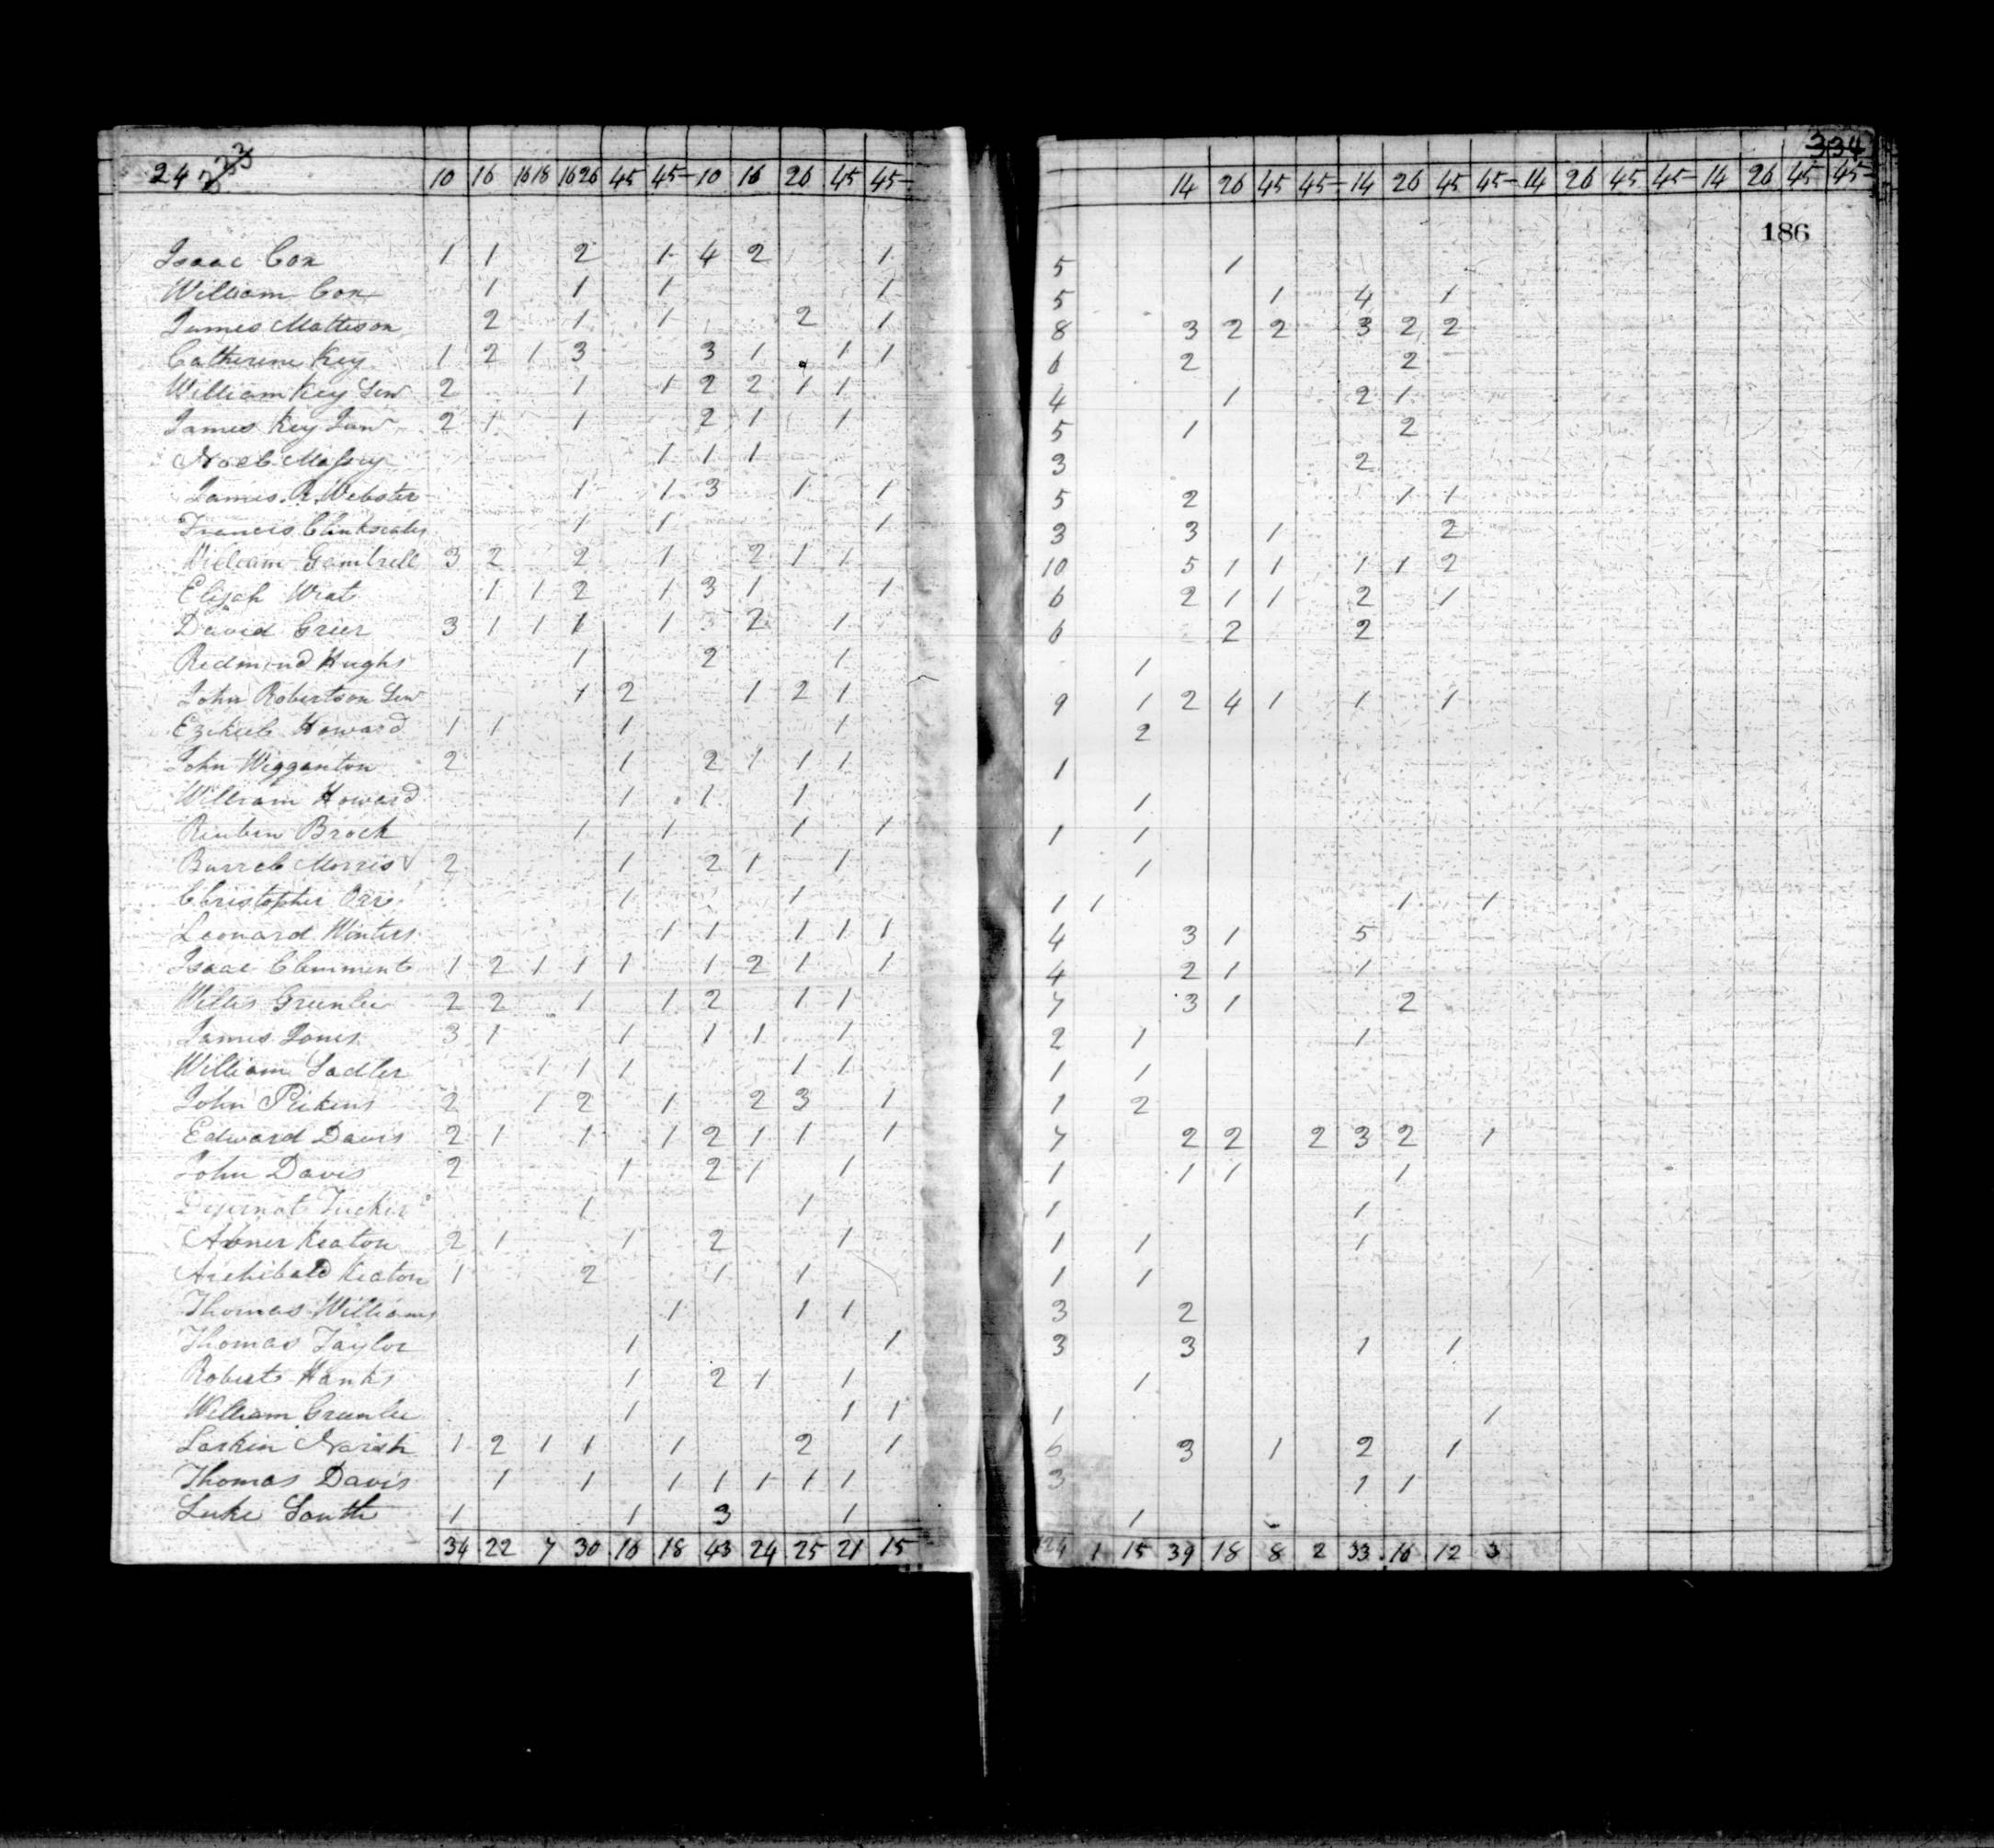 24 334
10 16 16 18 16 26 45 45- 10 16 26 45 45- 14 26 45 45- 14 26 45 45- 14 26 45 45- 14 26 45 45-
186
Isaac Cox 1 1 2 1 4 2 1 5 1
William Cox 1 1 1 1 5 1 4 1
James Mattison 2 1 1 2 1 8 3 2 2 3 2 2
Catherine Key 1 2 1 3 3 1 1 1 6 2 2
William Key Senr 2 1 1 2 2 1 1 4 1 2 1
James Key Junr 2 1 1 2 1 1 5 1 2
Noel Massey 1 1 1 3 2
James R Webster 1 1 3 1 1 5 2 1 1
Francis Clinkscales 1 1 1 3 3 1 2
William Gambrell 3 2 2 1 2 1 1 10 5 1 1 1 1 2
Elijah Wiat 1 1 2 1 3 1 1 6 2 1 1 2 1
David Grier 3 1 1 1 1 3 2 1 6 2 2
Redmond Hughs 1 2 1 1
John Robertson Senr 1 2 1 2 1 9 1 2 4 1 1 1
Ezekiel Howard 1 1 1 1 2
John Wigganton 2 1 2 1 1 1 1
William Howard 1 1 1 1
Reuben Brock 1 1 1 1 1 1
Burrel Morris 2 1 2 1 1 1
Christopher Orr 1 1 1 1 1 1
Leonard Winters 1 1 1 1 1 4 3 1 5
Isaac Clemment 1 2 1 1 1 1 2 1 1 4 2 1 1
Willis Greenlee 2 2 1 1 2 1 1 7 3 1 2
James Jones 3 1 1 1 1 1 2 1 1
William Sadler 1 1 1 1 1 1 1
John Pickens 2 1 2 1 2 3 1 1 2
Edward Davis 2 1 1 1 2 1 1 1 7 2 2 2 3 2 1
John Davis 2 1 2 1 1 1 1 1 1
Tucker 1 1 1 1
Abner Keaton 2 1 1 2 1 1 1 1
Archibald Keaton 1 2 1 1 1 1
Thomas Williams 1 1 1 3 2
Thomas Taylor 1 1 3 3 1 1
Robert Hanks 1 2 1 1 1
William Greenlee 1 1 1 1 1
Larkin Narish 1 2 1 1 1 2 1 6 3 1 2 1
Thomas Davis 1 1 1 1 1 1 1 3 1 1
Luke South 1 1 3 1 1
34 22 7 30 16 18 43 24 25 21 15 124 1 15 39 18 8 2 33 16 12 3